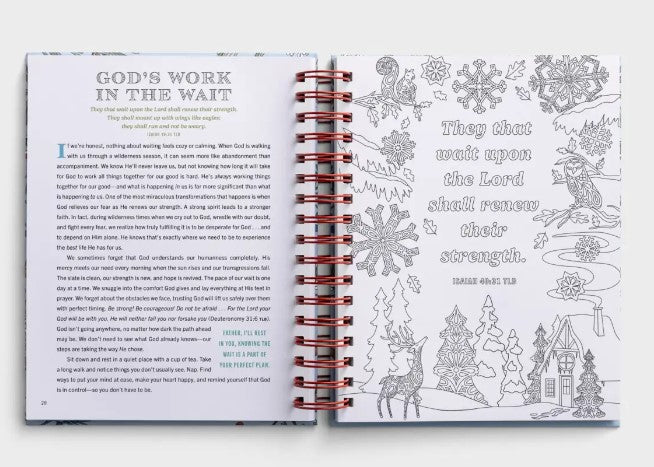 GOD'S WORK
IN THE WAIT
They that wait upon the Lord shall renew their strength.
They shall mount up with wings like eagles;
they shall run and not be weary.
ISAIAH 40:31 TLB
If we're honest, nothing about waiting feels cozy or calming. When God is walking
with us through a wilderness season, it can seem more like abandonment than
accompaniment. We know He'll never leave us, but not knowing how long it will take
for God to work all things together for our good is hard. He's always working things
together for our good—and what is happening in us is far more significant than what
is happening to us. One of the most miraculous transformations that happens is when
God relieves our fear as He renews our strength. A strong spirit leads to a stronger
faith. In fact, during wilderness times when we cry out to God, wrestle with our doubt,
and fight every fear, we realize how truly fulfilling it is to be desperate for God . . . and
to depend on Him alone. He knows that's exactly where we need to be to experience
the best life He has for us.
We sometimes forget that God understands our humanness completely. His
mercy meets our need every morning when the sun rises and our transgressions fall.
The slate is clean, our strength is new, and hope is revived. The pace of our wait is one
day at a time. We snuggle into the comfort God gives and lay everything at His feet in
prayer. We forget about the obstacles we face, trusting God will lift us safely over them
with perfect timing. Be strong! Be courageous! Do not be afraid . . . For the Lord your
God will be with you. He will neither fail you nor forsake you (Deuteronomy 31:6 TLB).
God isn't going anywhere, no matter how dark the path ahead
may be. We don't need to see what God already knows—our
steps are taking the way He chose.
Sit down and rest in a quiet place with a cup of tea. Take
a long walk and notice things you don't usually see. Nap. Find
ways to put your mind at ease, make your heart happy, and remind yourself that God
is in control—so you don't have to be.
FATHER, I'LL REST
IN YOU, KNOWING THE
WAIT IS A PART OF
YOUR PERFECT PLAN.
20
They that
wait upon
the Lord
shall renew
their
strength.
ISAIAH 40:31 TLB